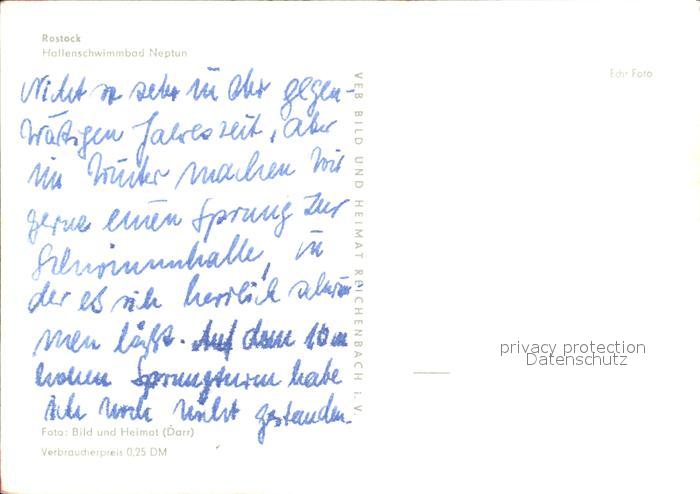 Rostock
Hallenschwimmbad Neptun
Echt Foto
Nicht so sehr in der gegen-
wärtigen Jahreszeit, aber
im Winter machen wir
gerne einen Sprung zur
Schwimmhalle, in
der es sich herrlich schwim
men läßt. Auf dem 10 m
hohen Sprungturm habe
ich noch nicht gestanden.
VEB BILD UND HEIMAT REICHENBACH i. V.
privacy protection
Datenschutz
Foto: Bild und Heimat (Darr)
Verbraucherpreis 0,25 DM